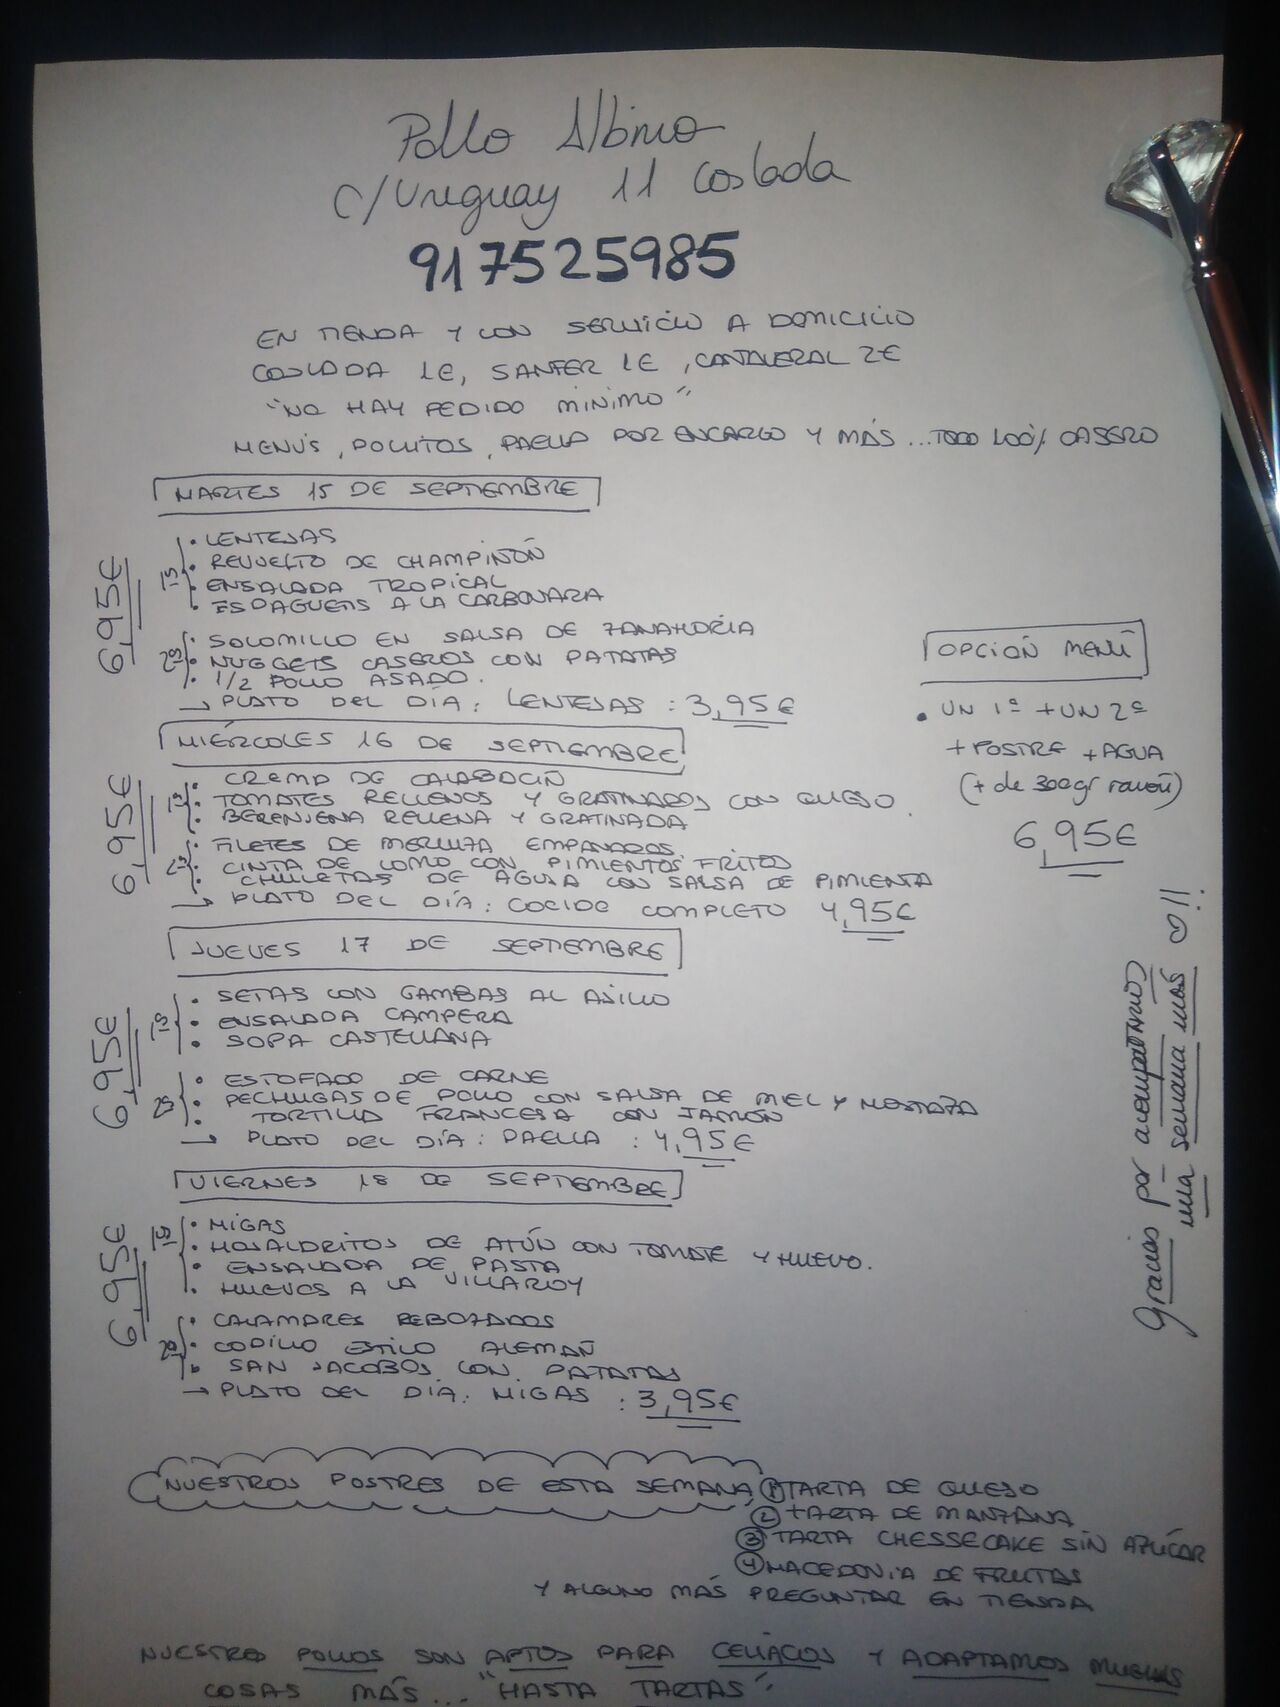 Pollo Albino
C/Uruguay 11 Coslada
917525985
EN TIENDA Y CON SERVICIO A DOMICILIO
COSLADA 1€, SANFER 1€, CAÑAVERAL 2€
"NO HAY PEDIDO MÍNIMO"
MENÚS, POLLITOS, PAELLA POR ENCARGO Y MÁS ... TODO 100% CASERO
MARTES 15 DE SEPTIEMBRE
6,95€
1º
• LENTEJAS
• REVUELTO DE CHAMPIÑÓN
• ENSALADA TROPICAL
• ESPAGUETIS A LA CARBONARA
2º
• SOLOMILLO EN SALSA DE ZANAHORIA
• NUGGETS CASEROS CON PATATAS
• 1/2 POLLO ASADO.
→ PLATO DEL DÍA: LENTEJAS : 3,95€
MIÉRCOLES 16 DE SEPTIEMBRE
6,95€
1º
• CREMA DE CALABACÍN
• TOMATES RELLENOS Y GRATINADOS CON QUESO
• BERENJENA RELLENA Y GRATINADA
2º
• FILETES DE MERLUZA EMPANADOS
• CINTA DE LOMO CON PIMIENTOS FRITOS
• CHULETAS DE AGUJA CON SALSA DE PIMIENTA
→ PLATO DEL DÍA: COCIDO COMPLETO 4,95€
JUEVES 17 DE SEPTIEMBRE
6,95€
1º
• SETAS CON GAMBAS AL AJILLO
• ENSALADA CAMPERA
• SOPA CASTELLANA
2º
• ESTOFADO DE CARNE
• PECHUGAS DE POLLO CON SALSA DE MIEL Y MOSTAZA
• TORTILLA FRANCESA CON JAMÓN
→ PLATO DEL DÍA: PAELLA : 4,95€
VIERNES 18 DE SEPTIEMBRE
6,95€
1º
• MIGAS
• HOJALDRITOS DE ATÚN CON TOMATE Y HUEVO.
• ENSALADA DE PASTA
• HUEVOS A LA VILLAROY
2º
• CALAMARES REBOZADOS
• CODILLO ESTILO ALEMÁN
• SAN JACOBOS CON PATATAS
→ PLATO DEL DÍA: MIGAS : 3,95€
OPCIÓN MENÚ
• UN 1º + UN 2º
+ POSTRE + AGUA
(+ de 300gr ración)
6,95€
Gracias por acompañarnos
una semana más ♡!!
NUESTROS POSTRES DE ESTA SEMANA ① TARTA DE QUESO
② TARTA DE MANZANA
③ TARTA CHESSECAKE SIN AZÚCAR
④ MACEDONIA DE FRUTAS
Y ALGUNO MÁS PREGUNTAR EN TIENDA
NUESTROS POLLOS SON APTOS PARA CELÍACOS Y ADAPTAMOS MUCHAS
COSAS MÁS... "HASTA TARTAS"